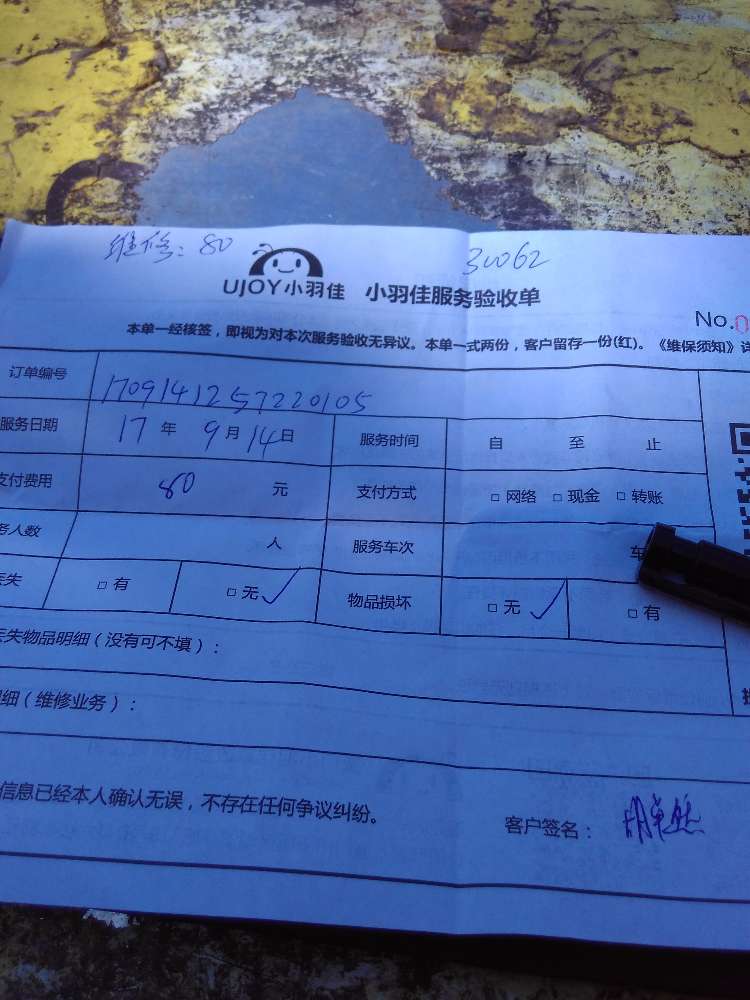 维修：80 31062
UJOY小羽佳 小羽佳服务验收单
No.0
本单一经核签，即视为对本次服务验收无异议。本单一式两份，客户留存一份(红)。《维保须知》详
订单编号 1709141257220105
服务日期 17 年 9 月 14 日 服务时间 自 至 止
支付费用 80 元 支付方式 □ 网络 □ 现金 □ 转账
务人数 人 服务车次 车
丢失 □ 有 □ 无 ✓ 物品损坏 □ 无 ✓ □ 有
丢失物品明细（没有可不填）：
细（维修业务）：
信息已经本人确认无误，不存在任何争议纠纷。
客户签名：